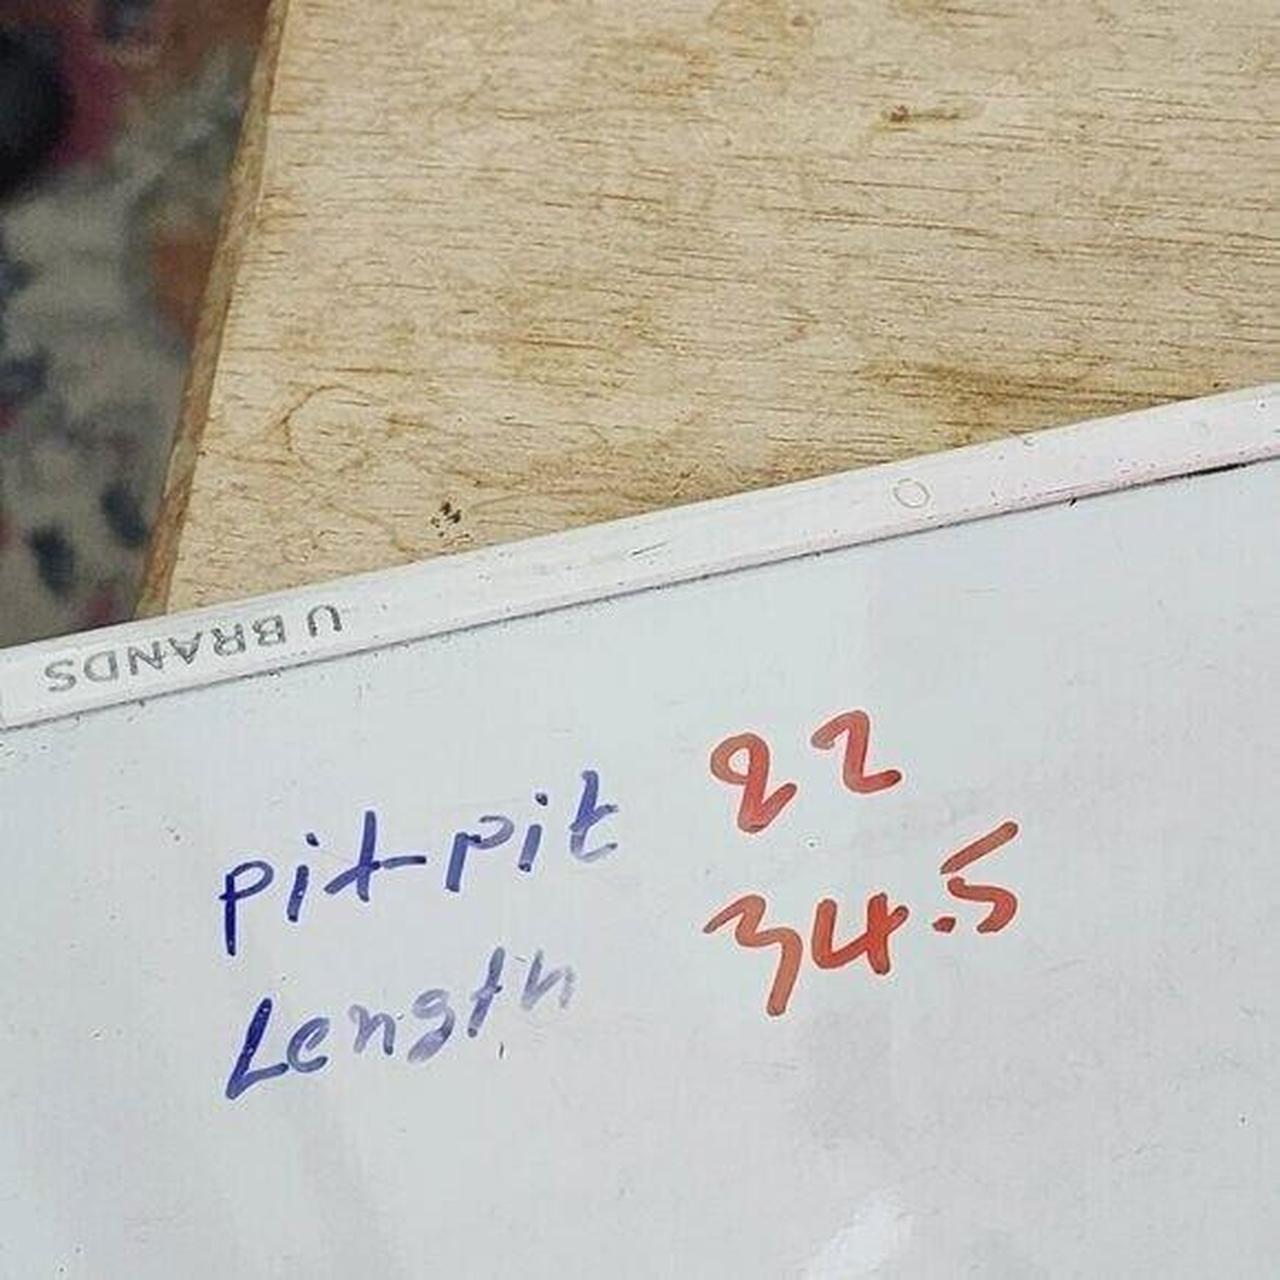 U BRANDS
Pit-pit 22
Length 34.5